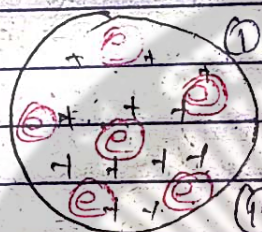 ①
e
+ +
e +
e + + +
e
+ + + +
e + + e